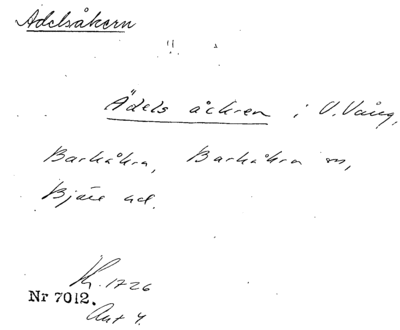 Adelsåkern
Ädels åckren i V. Vång,
Barkåkra, Barkåkra sn,
Bjäre hd.
Kr. 1726
Nr 7012.
Akt 4.